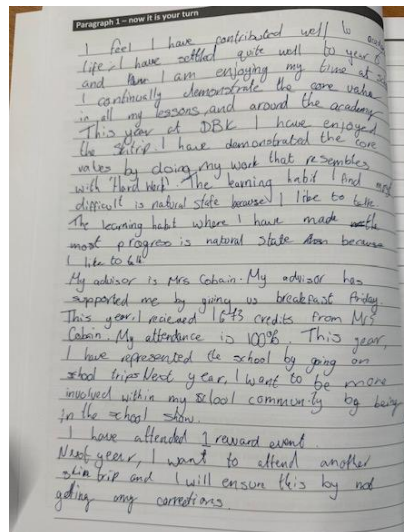 Paragraph 1 – now it is your turn
I feel I have contributed well to
life. I have settled quite well to year
and I am enjoying my time at
I continually demonstrate the core value
in all my lessons and around the academy
This year at DBK I have enjoyed
the skitrip. I have demonstrated the core
values by doing my work that resembles
with 'Hard Work'. The learning habit I find most
difficult is natural state because I like to
The learning habit where I have made the
most progress is natural state because
I like to
My advisor is Mrs Cobain. My advisor has
supported me by giving us breakfast Friday.
This year I recieved 1673 credits from Mrs
Cobain. My attendance is 100%. This year,
I have represented the school by going on
school trips Next year, I want to be more
involved within my school community by being
in the school show.
I have attended 1 reward event.
Next year, I want to attend another
skin trip and I will ensure this by not
getting any corrections.